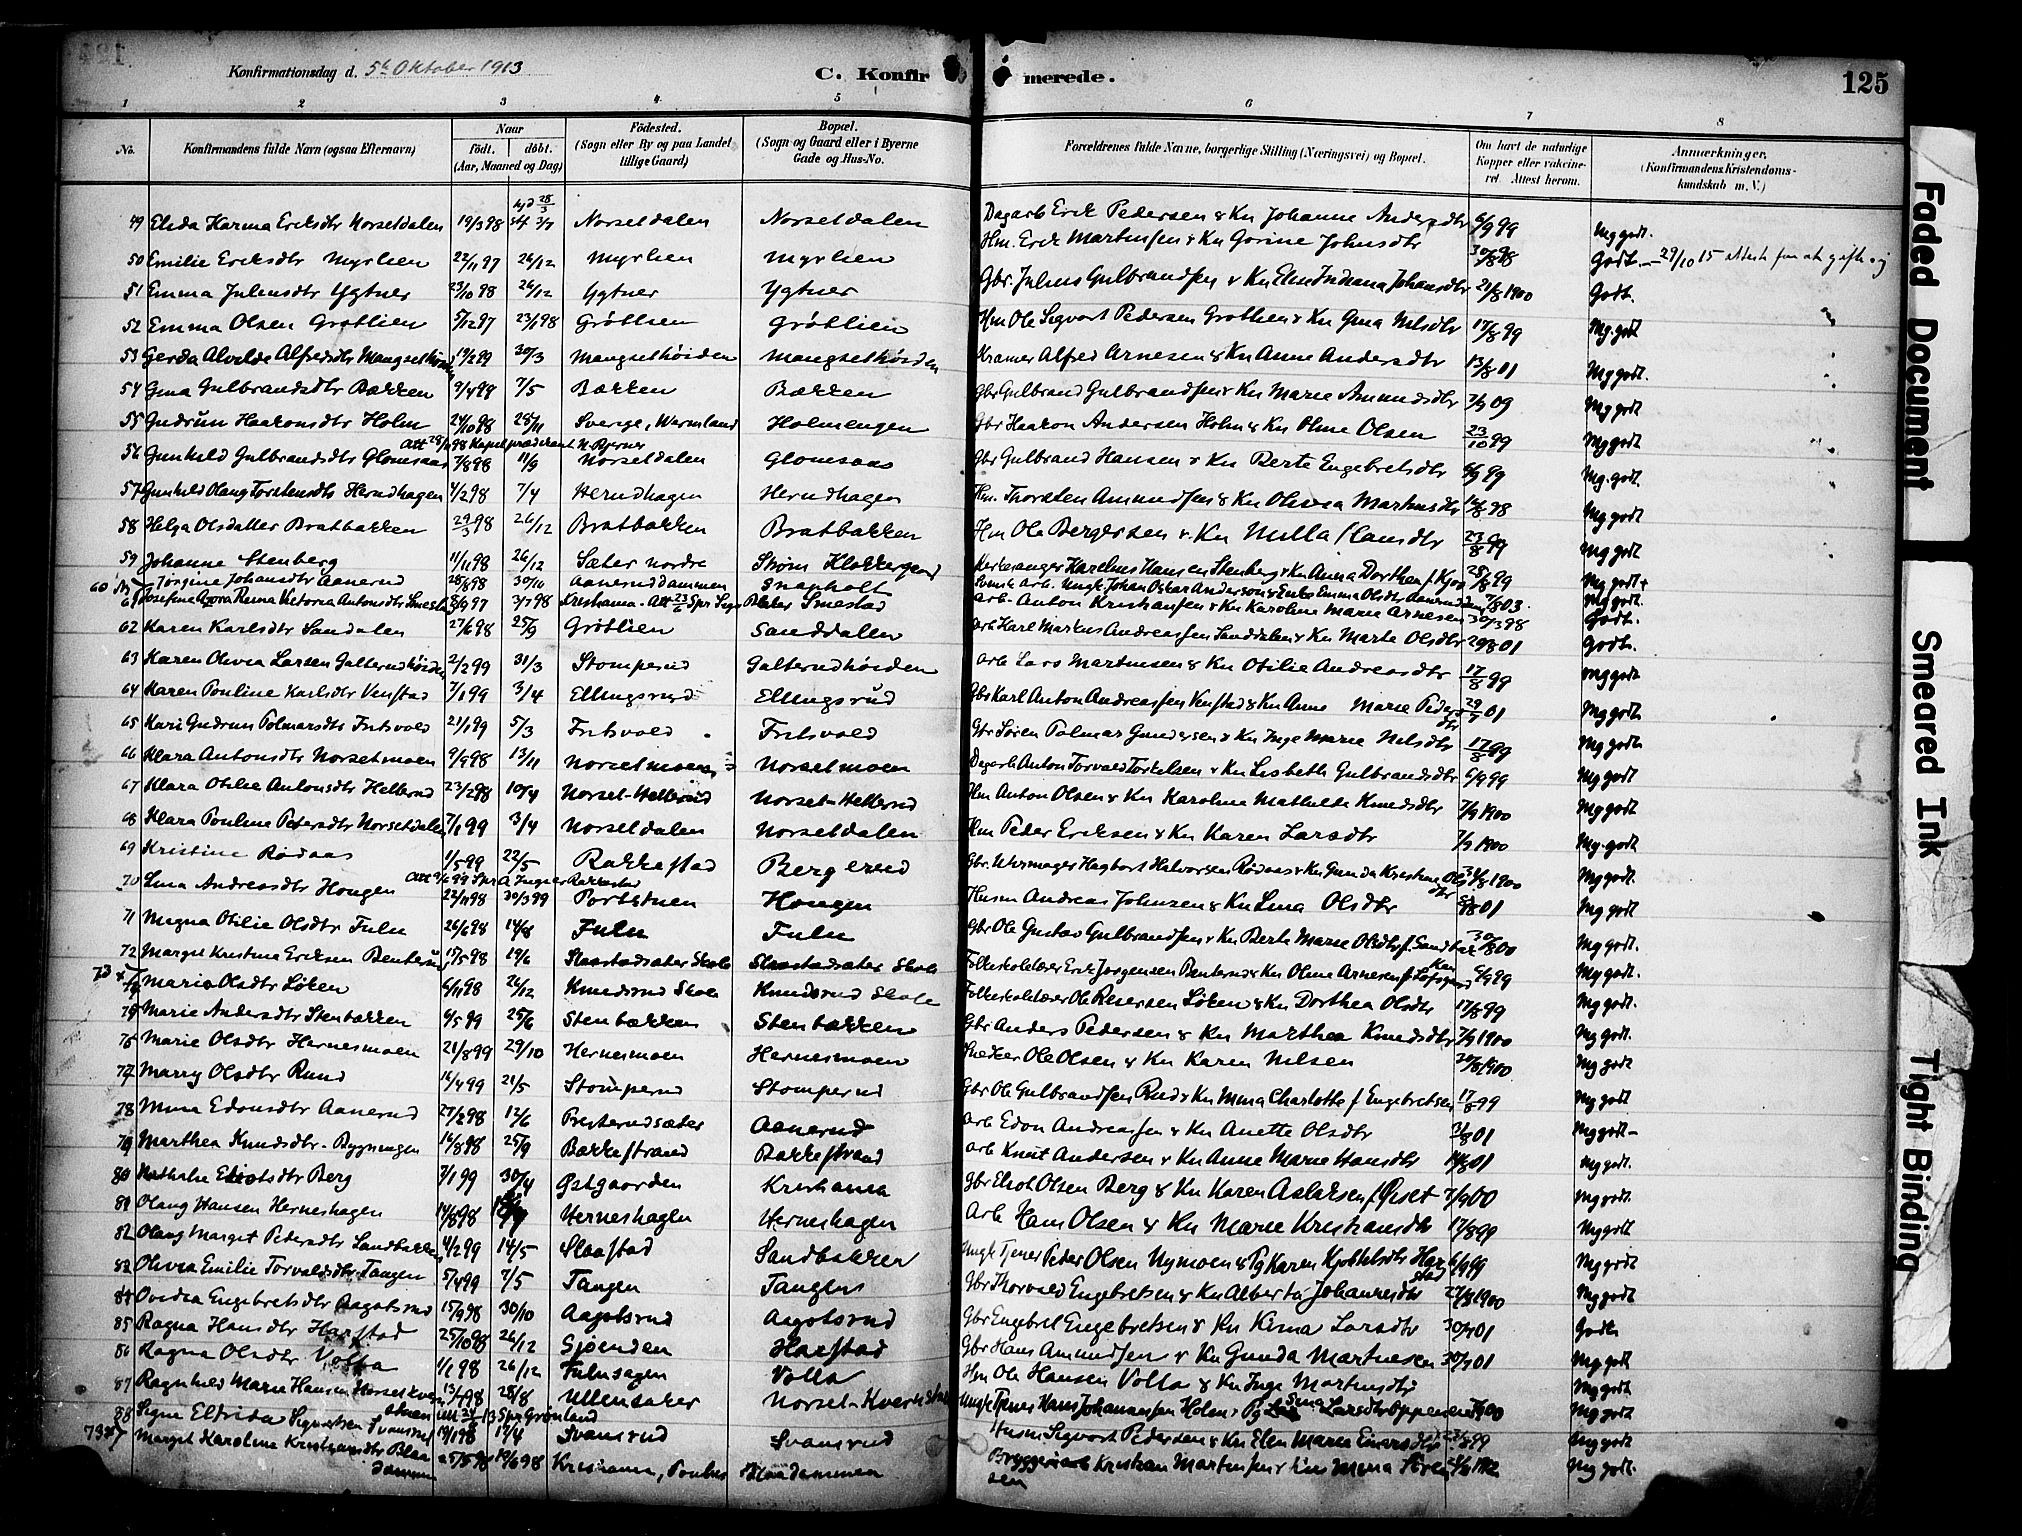 Konfirmationsdag d. 5te Oktober 1913
C. Konfirmerede.
125
1 2 3 4 5 6 7 8
No. Konfirmandens fulde Navn (ogsaa Efternavn) Naar født. døbt. (Aar, Maaned og Dag) Fødested. (Sogn eller By og paa Landet tillige Gaard) Bopæl. (Sogn og Gaard eller i Byerne Gade og Hus-No. Forældrenes fulde Navne, borgerlige Stilling (Næringsvei) og Bopæl. Om havt de naturlige Kopper eller vakcineret. Attest herom. Anmærkninger. (Konfirmandens Kristendomskundskab m. V.)
49 Elida Karma Eriksdtr Norsetdalen 19/3 98 hjd 28/3 stf 3/7 Norsetdalen Norsetdalen Dagarb Erik Pedersen & Kn Johanne Andersdtr 6/9 99 Mg godt.
50 Emilie Eriksdtr Myrlien 22/11 97 26/12 Myrlien Myrlien Hm. Erik Martinsen & Kn Gorine Johnsdtr 30/8 98 Godt. 29/10 15 attest for at gifte sig
51 Emma Juliusdtr Ygtner 23/10 98 26/12 Ygtner Ygtner Gbr. Julius Gulbrandsen & Kn Elin Indiana Johansdtr 21/8 1900 Godt.
52 Emma Olsen Grøtlien 5/12 97 23/1 98 Grøtlien Grøtlien Hm Ole Sigvart Pedersen Grøtlien & Kn Gina Nilsdtr 17/8 99 Mg. godt
53 Gerda Alvilde Alfredsdtr Mangsethøiden 19/2 99 30/3 Mangsethøiden Mangsethøiden Kramer Alfred Arnesen & Kn Anne Andersdtr 13/8 01 Mg godt.
54 Gina Gulbrandsdtr Bakken 9/4 98 7/5 Bakken Bakken Gbr Gulbrand Gulbrandsen & Kn Marie Amundsdtr 7/9 09 Mg godt
55 Gudrun Haakonsdtr Holm 24/10 98 28/11 Sverge, Wermland Holmengen Gbr Haakon Andersen Holm & Kn Oline Olsen 23/10 99 Mg godt
Att 28/11 98 Kapelpredikant N. Bjerner
56 Gunhild Gulbrandsdtr Glomsaas 7/8 98 11/9 Norsetdalen Glomsaas Gbr Gulbrand Hansen & Kn Berte Engebretsdtr 6/9 99 Mg. godt
57 Gunhild Olaug Torstensdtr Herudhagen 4/2 98 7/4 Herudhagen Herudhagen Hm. Thorsten Amundsen & Kn Olivia Martinsdtr 16/8 98 Mg godt
58 Helga Olsdatter Bratbakken 29/3 98 26/12 Bratbakken Bratbakken Hm Ole Bergersen & Kn Milla Hansdtr 23/8 99 Mg godt
59 Johanne Stenberg 11/11 98 26/12 Sæter nordre Strøm Klokkergaard Kirkesanger Karelius Hansen Stenberg & Kn Anna Dorthea f. Kjos 28/8 99 Mg godt +
60 Jørgine Johansdtr Aanerud 28/8 98 30/10 Aaneruddammen Snapholt Svensk arb. Ungk Johan Oskar Anderson & Enke Emma Olsdtr 7/8 03. Mg godt.
61 Josefine Rema Viktoria Antonsdtr Smestad 8/6 97 3/7 98 Kristiania. Smestad Arb. Anton Kristiansen & Kn Karoline Marie Arnesen 30/3 98 Godt.
62 Karen Karlsdtr Sandalen 27/6 98 25/9 Grøtlien Sanddalen Arb Karl Markus Andreassen Sanddalen & Kn Marte Olsdtr 29/8 01 Godt.
63 Karen Olivia Larsen Galterudhøiden 2/2 99 31/3 Stomperud Galterudhøiden Arb Lars Martinsen & Kn Otilie Andreasdtr 17/8 99 Mg godt
64 Karen Pouline Karlsdtr Venstad 7/1 99 3/4 Ellingsrud Ellingsrud Gbr Karl Anton Andreassen Venstad & Kn Anne Marie Pedersdtr 29/7 01 Mg godt
65 Kari Gudrun Polmarsdtr Fritsvold 21/1 99 5/3 Fritsvold Fritsvold Gbr Søren Polmar Gundersen & Kn Inge Marie Nilsdtr 17/8 99 Mg godt
66 Klara Antonsdtr Norsetmoen 9/9 98 13/11 Norsetmoen Norsetmoen Dagarb Anton Torvald Torkelsen & Kn Lisbeth Gulbrandsdtr 6/9 99 Mg godt
67 Klara Otilie Antonsdtr Hellerud 23/2 98 10/4 Norset-Hellerud Norset-Hellerud Hm Anton Olsen & Kn Karoline Mathilde Knudsdtr 7/9 1900 Mg godt
68 Klara Pouline Pedersdtr Norsetdalen 7/1 99 3/4 Norsetdalen Norsetdalen Hm Peder Eriksen & Kn Karen Larsdtr 7/9 1900 Mg. godt
69 Kristine Rødaas 1/5 99 22/5 Rakkestad Bergerud Gbr. Uhrmager Hagbart Halvorsen Rødaas & Kn Gunda Kristine Olsdtr 31/8 1900 Mg godt.
70 Lina Andreasdtr Haugen 22/11 98 30/3 99 Portstuen Haugen Husm Andreas Johnsen & Kn Lina Olsdtr 8/01 Mg godt
71 Magna Otilie Olsdtr Fulu 26/6 98 14/8 Fulu Fulu Gbr Ole Gustav Gulbrandsen & Kn Berte Marie Olsdtr f. Sandbakken 30/8 00 Mg godt.
72 Margit Kristina Eriksen Benterud 17/5 98 19/6 Slaastadsæter Skole Slaastadsæter Skole Folkeskolelærer Erik Jørgensen Benterud & Kn Oline Arnesen f. Løfsgaard 6/9 99 Mg godt.
74 Marie Olsdtr Løken 6/11 98 26/12 Knudsrud Skole Knudsrud Skole Folkeskolelærer Ole Reiersen Løken & Kn Dorthea Olsdtr 17/8 99 Mg godt.
75 Marie Andersdtr Stenbakken 6/5 99 25/6 Stenbakken Stenbakken Gbr Anders Pedersen & Kn Marthea Knudsdtr 7/9 1900 Mg godt.
76 Marie Olsdtr Hernesmoen 21/8 99 29/10 Hernesmoen Hernesmoen Snekker Ole Olsen & Kn Karen Nilsen 30/8 1900 Mg godt
77 Marry Olsdtr Rund 16/4 99 21/5 Stomperud Stomperud Gbr Ole Gulbrandsen Rud & Kn Mina Charlotte f Engebretsen 17/8 99 Mg godt
78 Mina Edonsdtr Aanerud 27/2 98 12/6 Presterudsæter Aanerud Arb Edon Andreassen & Kn Anette Olsdtr 31/8 01 Mg godt -
79 Marthea Knudsdtr. Bygningen 16/8 98 25/9 Bakkestrand Bakkestrand Arb Knut Andersen & Kn Anne Marie Hansdtr 14/8 01 Mg godt.
80 Nathalie Eliotsdtr Berg 7/1 99 30/4 Østgaarden Kristiania Gbr Eliot Olsen Berg & Kn Karen Aslaksen f Øiset 7/9 00 Mg godt
81 Olaug Hansen Herneshagen 14/8 98 Herneshagen Herneshagen Arb Hans Olsen & Kn Marie Kristiansdtr 17/8 99 Mg godt
82 Olaug Margit Pedersdtr Sandbakken 4/2 99 14/5 Slaastad Sandbakken Ungk Tjener Peder Olsen Nymoen & Pg Karen Kjostelsdtr Harstad 6/9 99 Mg godt
83 Olivia Emilie Torvaldsdtr Tangen 5/4 99 7/5 Tangen Tangen Gbr Thorvald Engebretsen & Kn Alberta Johannesdtr 27/8 1900 Mg godt
84 Ovidia Engebretsdtr Aagotsrud 15/9 98 30/10 Aagotsrud Aagotsrud Gbr Engebret Engebretsen & Kn Kirna Larsdtr 30/7 01 Godt
85 Ragna Hansdtr Harstad 25/10 98 26/12 Gjønden Harstad Gbr Hans Amundsen & Kn Gunda Martinsen 30/7 01 Mg godt
86 Ragna Olsdtr Volla 1/1 98 26/12 Fulusagen Volla Hm Ole Hansen Volla & Kn Inge Martinsdtr Mg godt
87 Ragnhild Marie Hansen Norsetkvernstuen 13/7 98 28/8 Ullensaker Norset-Kvernstuen Ungk Tjener Hans Johannessen Holen & Pg Sina Larsdtr Oppenen 1900 Mg godt
88 Signe Elfrida Sigvartsen Svansrud 19/1 98 17/4 Svansrud Svansrud Husm Sigvart Pedersen & Kn Elen Marie Einersdtr 23/8 99 Mg godt
73 Margit Karoline Kristiansdtr Blaadammen 25/5 98 19/6 98 Kristiania, Paulus Blaadammen Bryggeriarb Kristian Martinsen & Kn Mina Iversen 1912 Mg godt.
Faded Document
Smeared Ink
Tight Binding